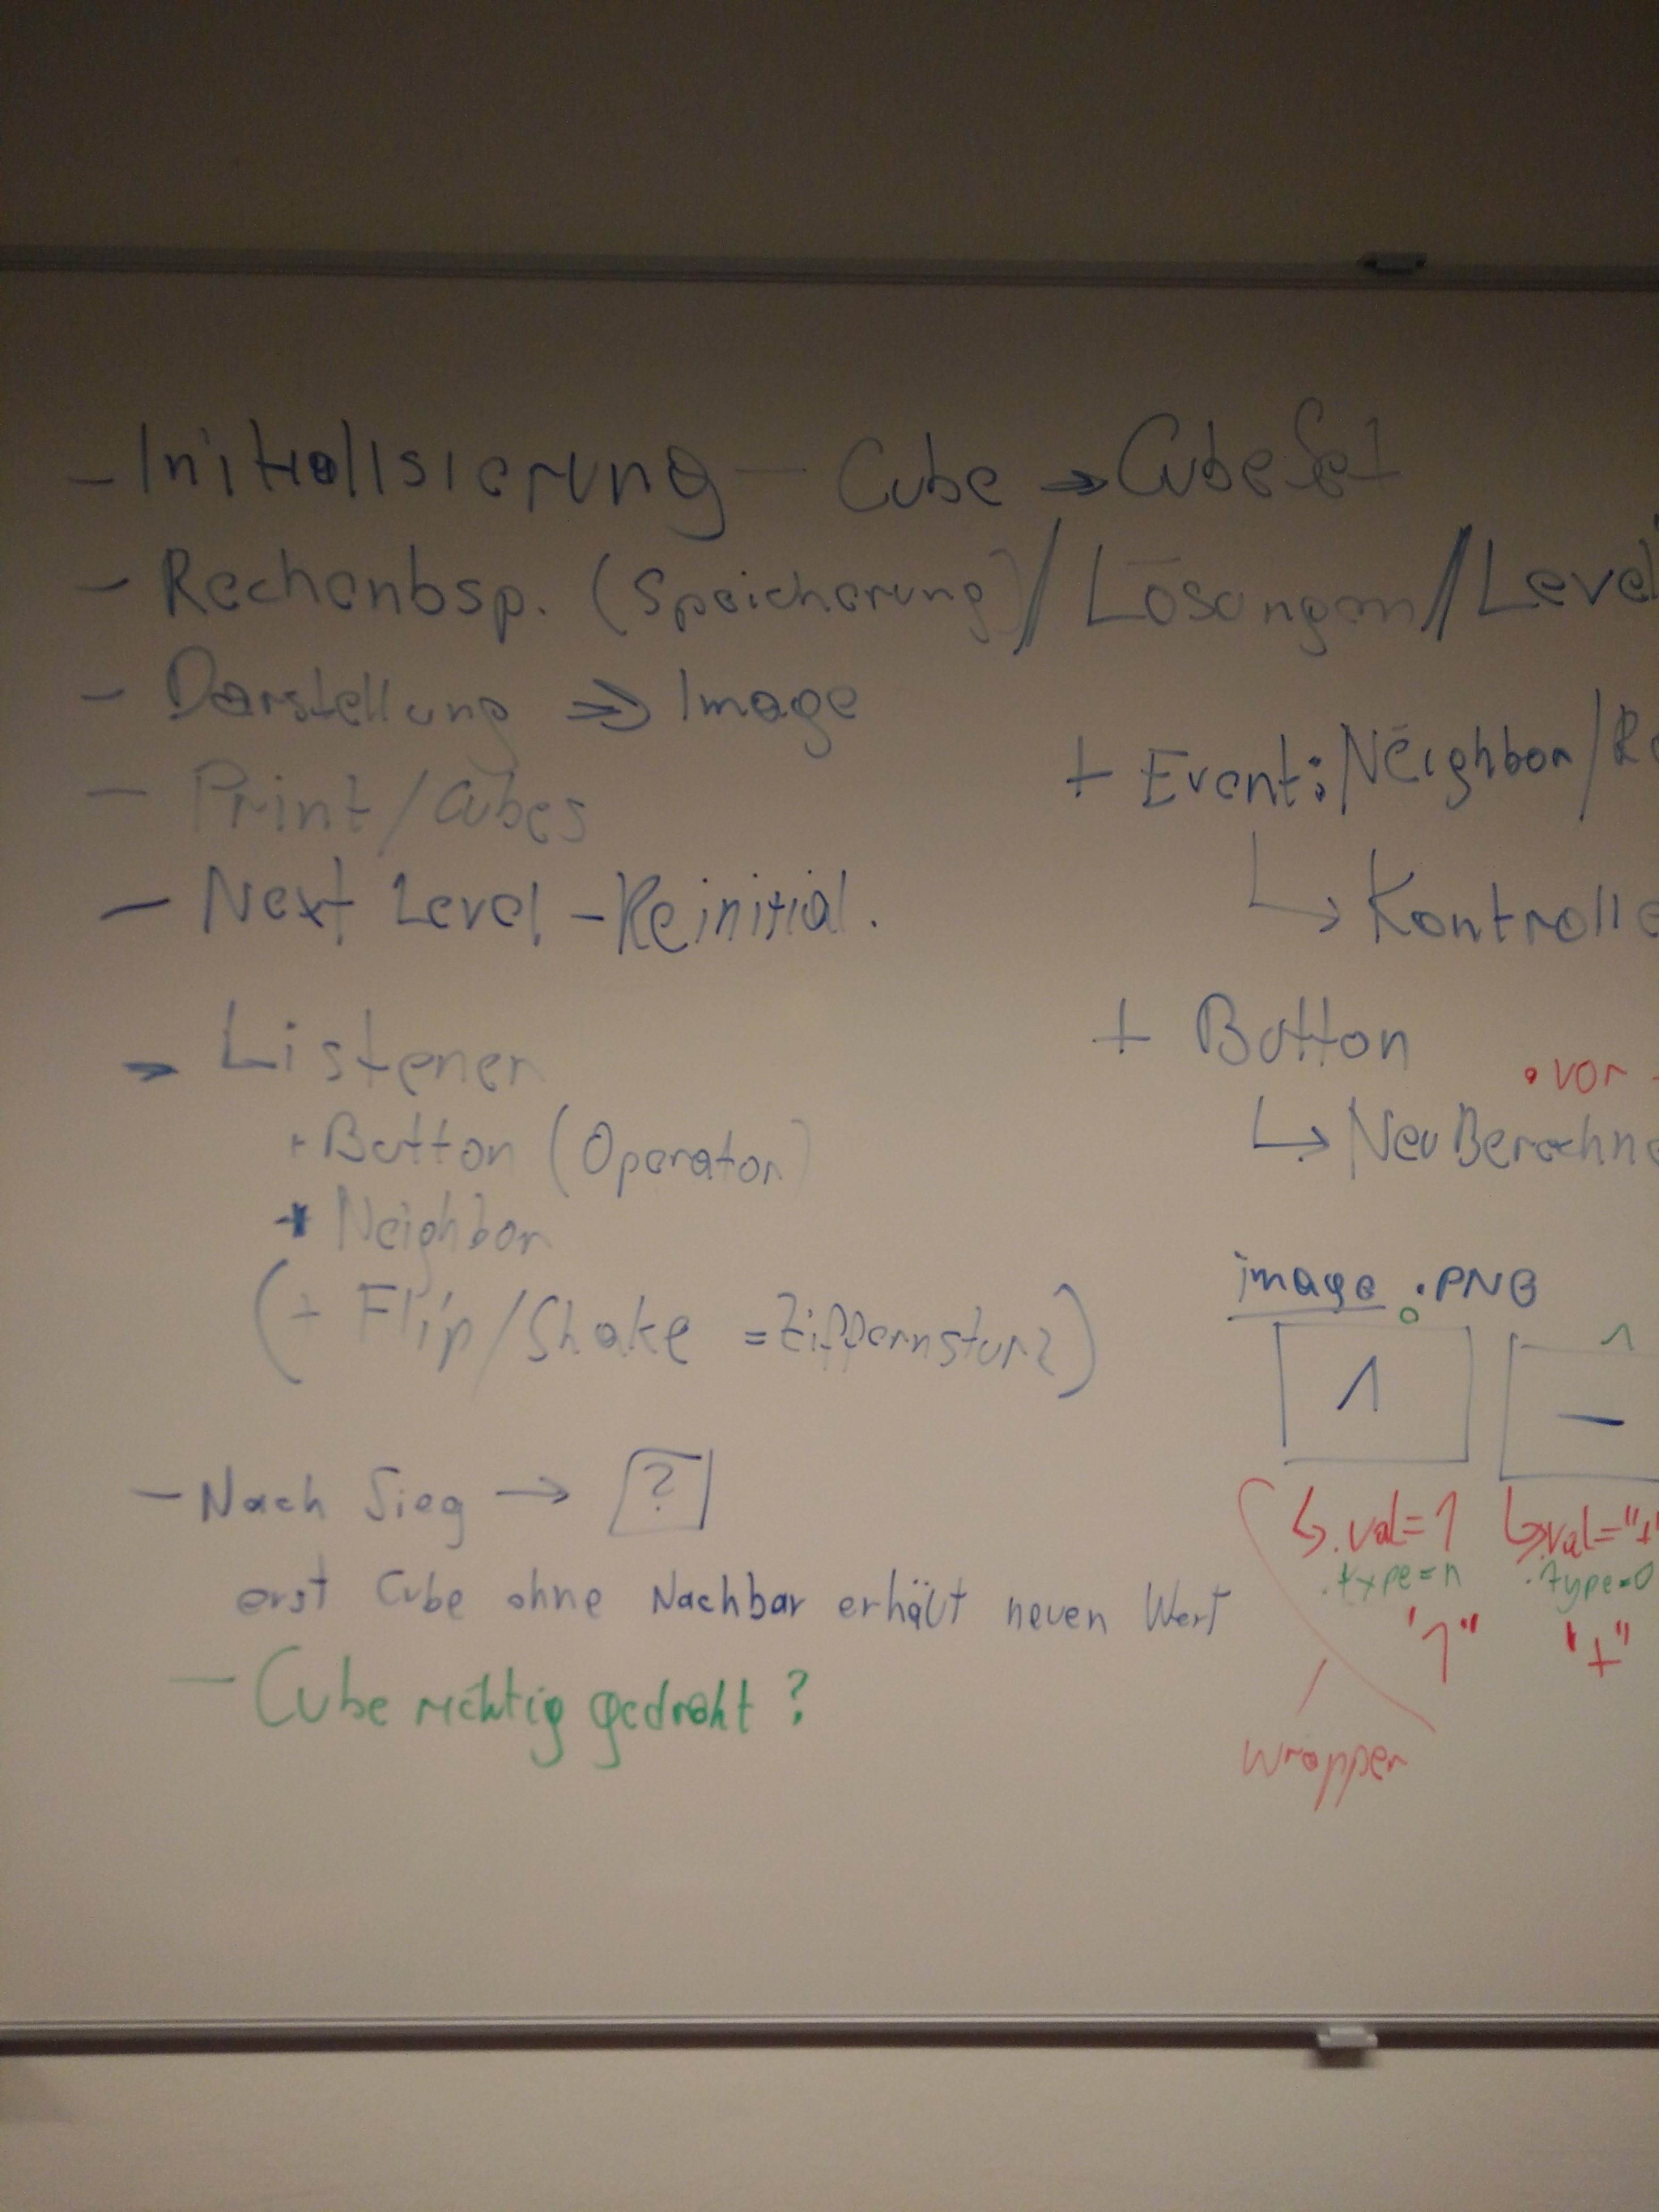 - Initialisierung - Cube → CubeSet
- Rechenbsp. (Speicherung) / Lösungen // Level
- Darstellung ⇒ Image
- Print / Cubes
- Next Level - Reinitial.
→ Listener
+ Button (Operator)
+ Neighbor
(+ Flip/Shake = Ziffernsturz)
- Nach Sieg → ?
erst Cube ohne Nachbar erhält neuen Wert
- Cube richtig gedreht?
+ Event: Neighbor / R
↳ Kontrolle
+ Button
• vor
↳ Neu Berechne
image .PNG
0 1
1 –
↳ .val=1 ↳ .val="+"
.type=n .type=0
"1" "+"
wrapper